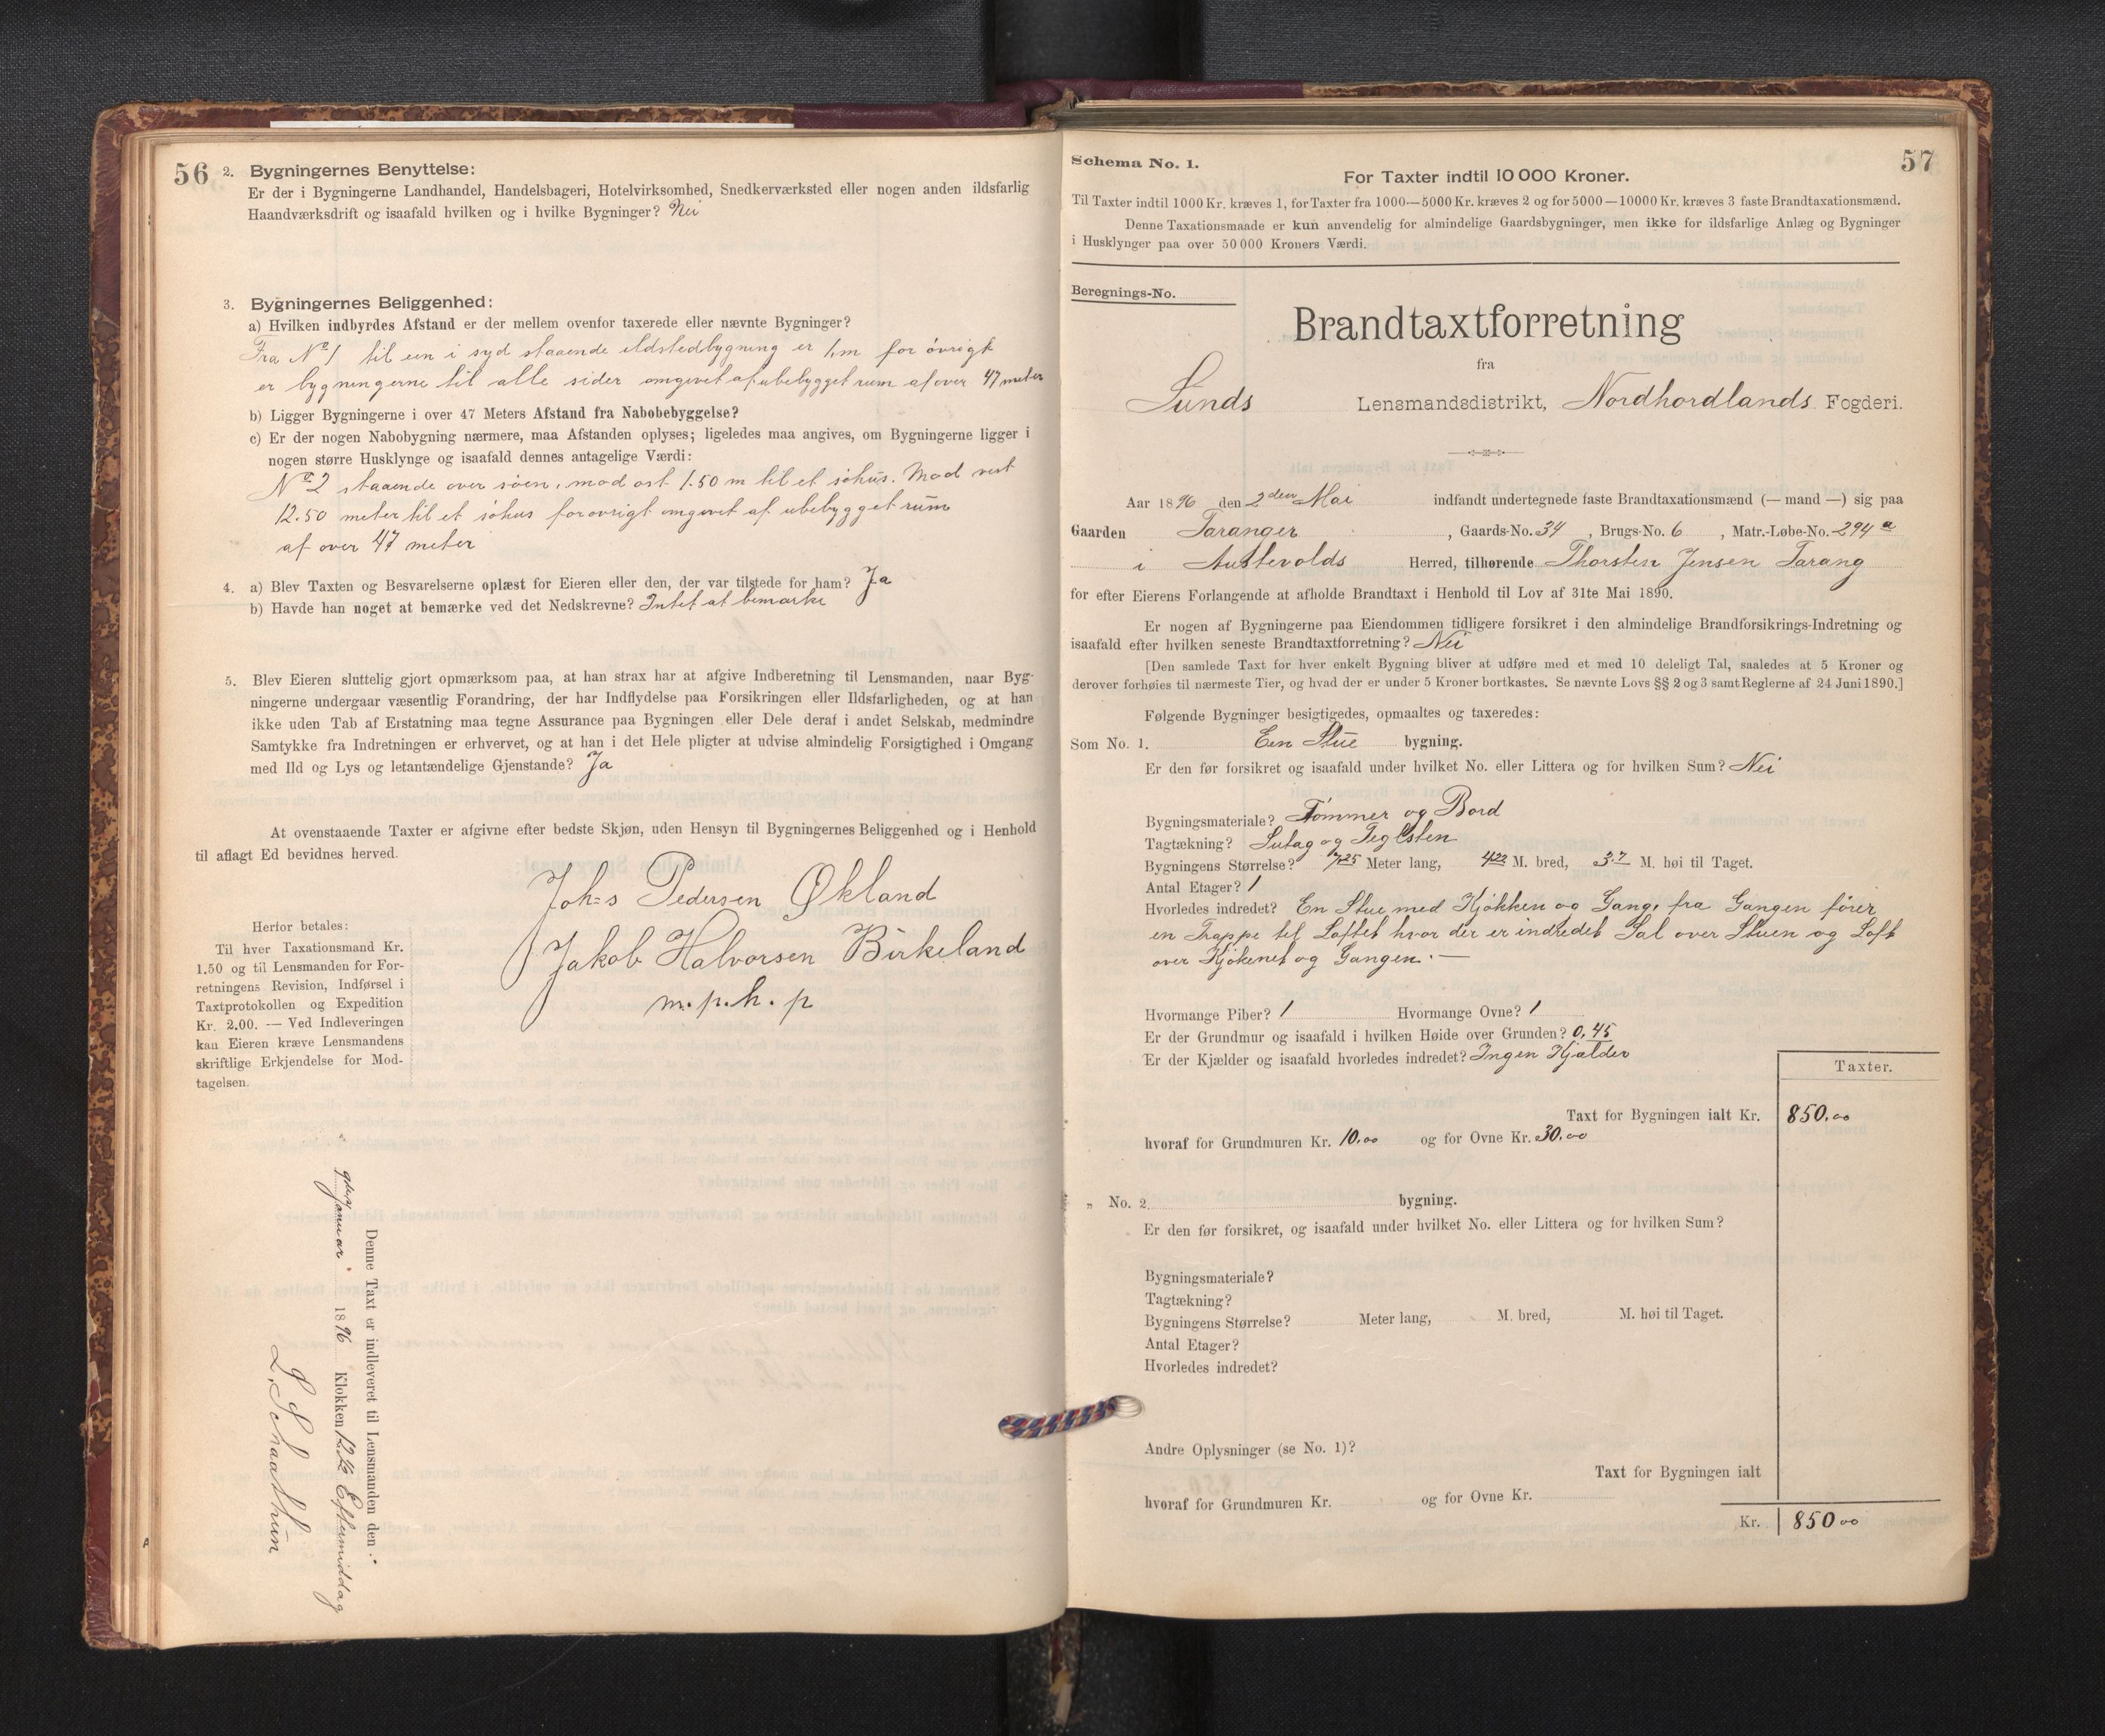 56
2. Bygningernes Benyttelse:
Er der i Bygningerne Landhandel, Handelsbageri, Hotelvirksomhed, Snedkerværksted eller nogen anden ildsfarlig
Haandværksdrift og isaafald hvilken og i hvilke Bygninger? Nei
3. Bygningernes Beliggenhed:
a) Hvilken indbyrdes Afstand er der mellem ovenfor taxerede eller nævnte Bygninger?
Fra No 1 til een i syd staaende ildstedbygning er 1,m for óvrigt
er bygningerne til alle sider omgivet af ubebygget rum af over 47 meter
b) Ligger Bygningerne i over 47 Meters Afstand fra Nabobebyggelse?
c) Er der nogen Nabobygning nærmere, maa Afstanden oplyses; ligeledes maa angives, om Bygningerne ligger i
nogen større Husklynge og isaafald dennes antagelige Værdi:
No 2 staaende over söen, mod ost 1.50 m til et sóhus. Mod vest
12.50 meter til et sóhus forovrigt omgivet af ubebygget rum
af over 47 meter
4. a) Blev Taxten og Besvarelserne oplæst for Eieren eller den, der var tilstede for ham? Ja
b) Havde han noget at bemærke ved det Nedskrevne? Intet at bemærke
5. Blev Eieren sluttelig gjort opmærksom paa, at han strax har at afgive Indberetning til Lensmanden, naar Byg-
ningerne undergaar væsentlig Forandring, der har Indflydelse paa Forsikringen eller Ildsfarligheden, og at han
ikke uden Tab af Erstatning maa tegne Assurance paa Bygningen eller Dele deraf i andet Selskab, medmindre
Samtykke fra Indretningen er erhvervet, og at han i det Hele pligter at udvise almindelig Forsigtighed i Omgang
med Ild og Lys og letantændelige Gjenstande? Ja
At ovenstaaende Taxter er afgivne efter bedste Skjøn, uden Hensyn til Bygningernes Beliggenhed og i Henhold
til aflagt Ed bevidnes herved.
Johs Pedersen Økland
Jakob Halvorsen Birkeland
m.p.h.p
Herfor betales:
Til hver Taxationsmand Kr.
1.50 og til Lensmanden for For-
retningens Revision, Indførsel i
Taxtprotokollen og Expedition
Kr. 2.00. — Ved Indleveringen
kan Eieren kræve Lensmandens
skriftlige Erkjendelse for Mod-
tagelsen.
Denne Taxt er indleveret til Lensmanden den
januar 1896 Klokken 12 1/2 Eftermiddag
57
Schema No. 1.
For Taxter indtil 10 000 Kroner.
Til Taxter indtil 1000 Kr. kræves 1, for Taxter fra 1000—5000 Kr. kræves 2 og for 5000—10000 Kr. kræves 3 faste Brandtaxationsmænd.
Denne Taxationsmaade er kun anvendelig for almindelige Gaardsbygninger, men ikke for ildsfarlige Anlæg og Bygninger
i Husklynger paa over 50 000 Kroners Værdi.
Beregnings-No.
Brandtaxtforretning
fra
Sunds Lensmandsdistrikt, Nordhordlands Fogderi.
Aar 1896 den 2den Mai indfandt undertegnede faste Brandtaxationsmænd (— mand —) sig paa
Gaarden Taranger, Gaards-No. 34, Brugs-No. 6, Matr.-Løbe-No. 294 a
i Austevolds Herred, tilhørende Thorsten Jensen Tarang
for efter Eierens Forlangende at afholde Brandtaxt i Henhold til Lov af 31te Mai 1890.
Er nogen af Bygningerne paa Eiendommen tidligere forsikret i den almindelige Brandforsikrings-Indretning og
isaafald efter hvilken seneste Brandtaxtforretning? Nei
[Den samlede Taxt for hver enkelt Bygning bliver at udføre med et med 10 deleligt Tal, saaledes at 5 Kroner og
derover forhøies til nærmeste Tier, og hvad der er under 5 Kroner bortkastes. Se nævnte Lovs §§ 2 og 3 samt Reglerne af 24 Juni 1890.]
Følgende Bygninger besigtigedes, opmaaltes og taxeredes:
Som No. 1. Een Stue bygning.
Er den før forsikret og isaafald under hvilket No. eller Littera og for hvilken Sum? Nei
Bygningsmateriale? Tømmer og Bord
Tagtækning? Sutag og Teglsten
Bygningens Størrelse? 7.25 Meter lang, 4.22 M. bred, 3.7 M. høi til Taget.
Antal Etager? 1
Hvorledes indredet? En Stue med Kjøkken og Gang, fra Gangen fører
en Trappe til Loftet hvor der er indredet Sal over Stuen og Loft
over Kjøkenet og Gangen. —
Hvormange Piber? 1 Hvormange Ovne? 1
Er der Grundmur og isaafald i hvilken Høide over Grunden? 0,45
Er der Kjælder og isaafald hvorledes indredet? Ingen Kjælder
Taxter.
Taxt for Bygningen ialt Kr. 850.00
hvoraf for Grundmuren Kr. 10.00 og for Ovne Kr. 30.00
„ No. 2. bygning.
Er den før forsikret, og isaafald under hvilket No. eller Littera og for hvilken Sum?
Bygningsmateriale?
Tagtækning?
Bygningens Størrelse? Meter lang, M. bred, M. høi til Taget.
Antal Etager?
Hvorledes indredet?
Andre Oplysninger (se No. 1)?
Taxt for Bygningen ialt
hvoraf for Grundmuren Kr. og for Ovne Kr.
Kr. 850 00